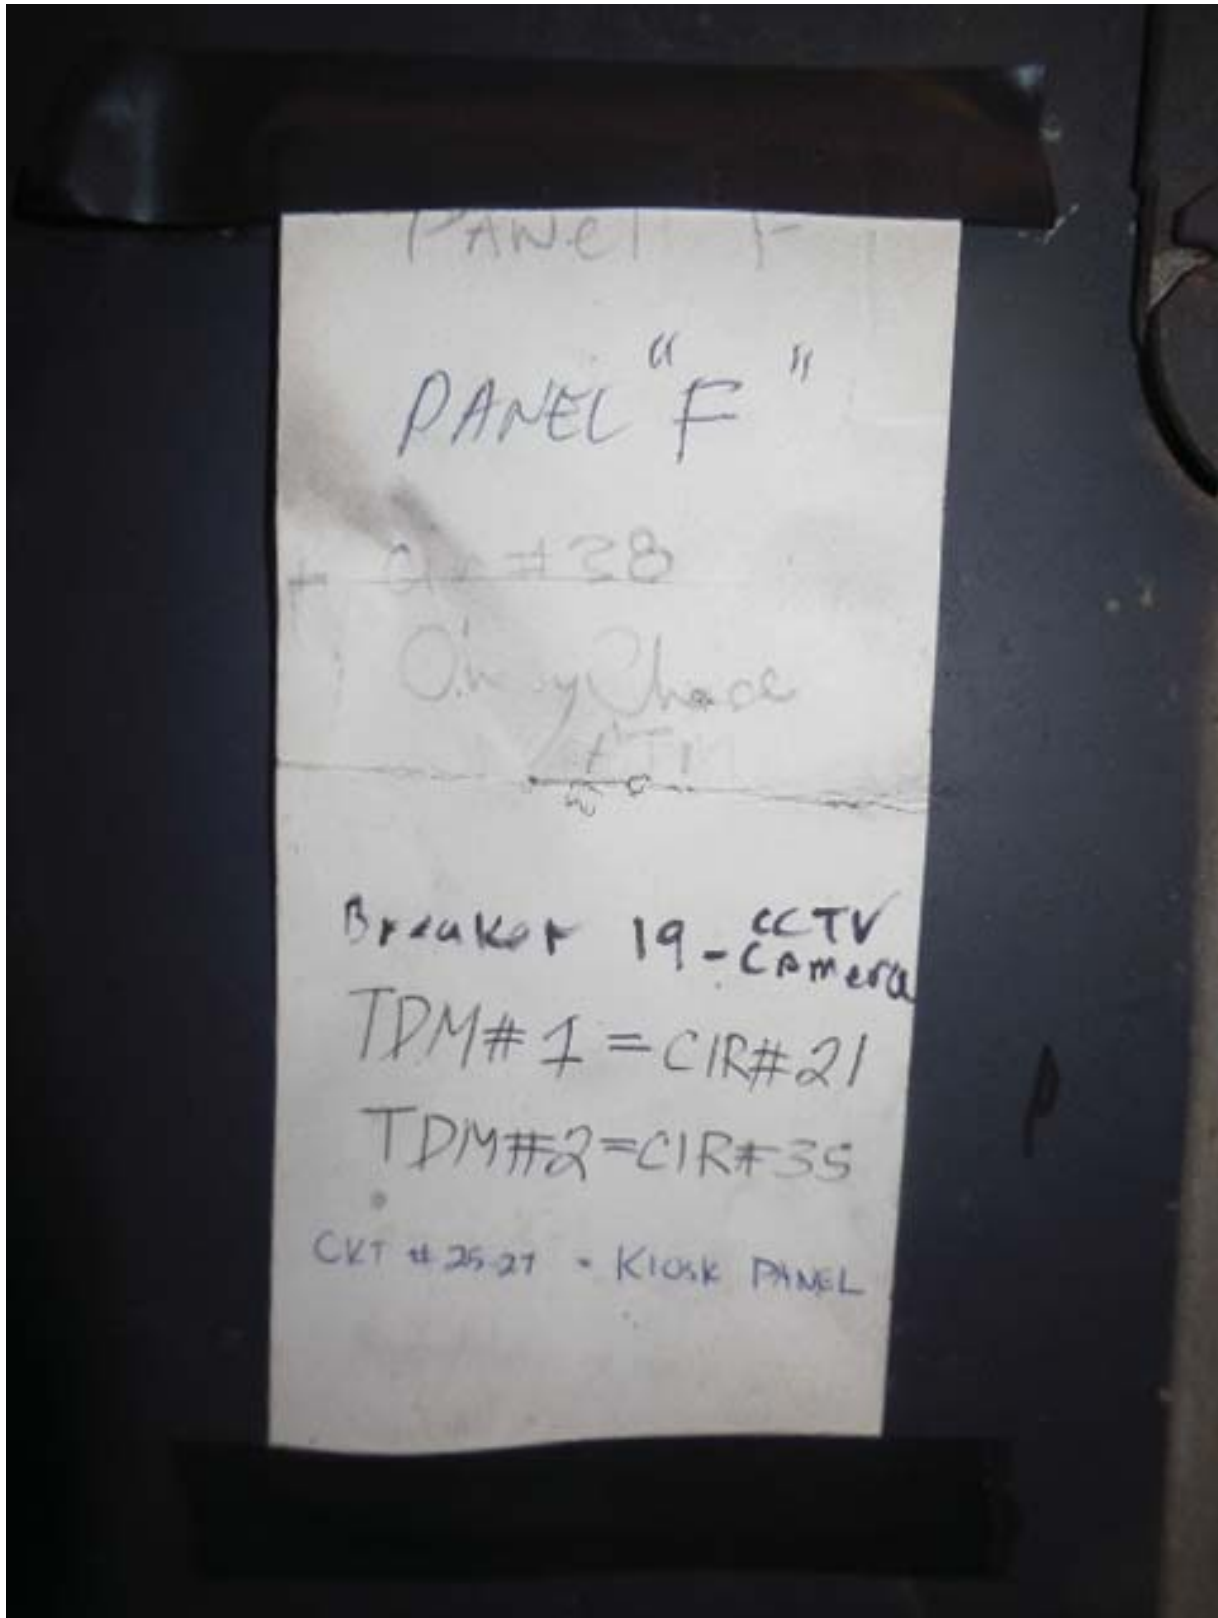 PANEL F
PANEL "F"
#38
Chase
ATM
Breaker 19 - CCTV Camera
TDM# 1 = CIR# 21
TDM#2 = CIR#35
CKT # 25-27 - KIOSK PANEL